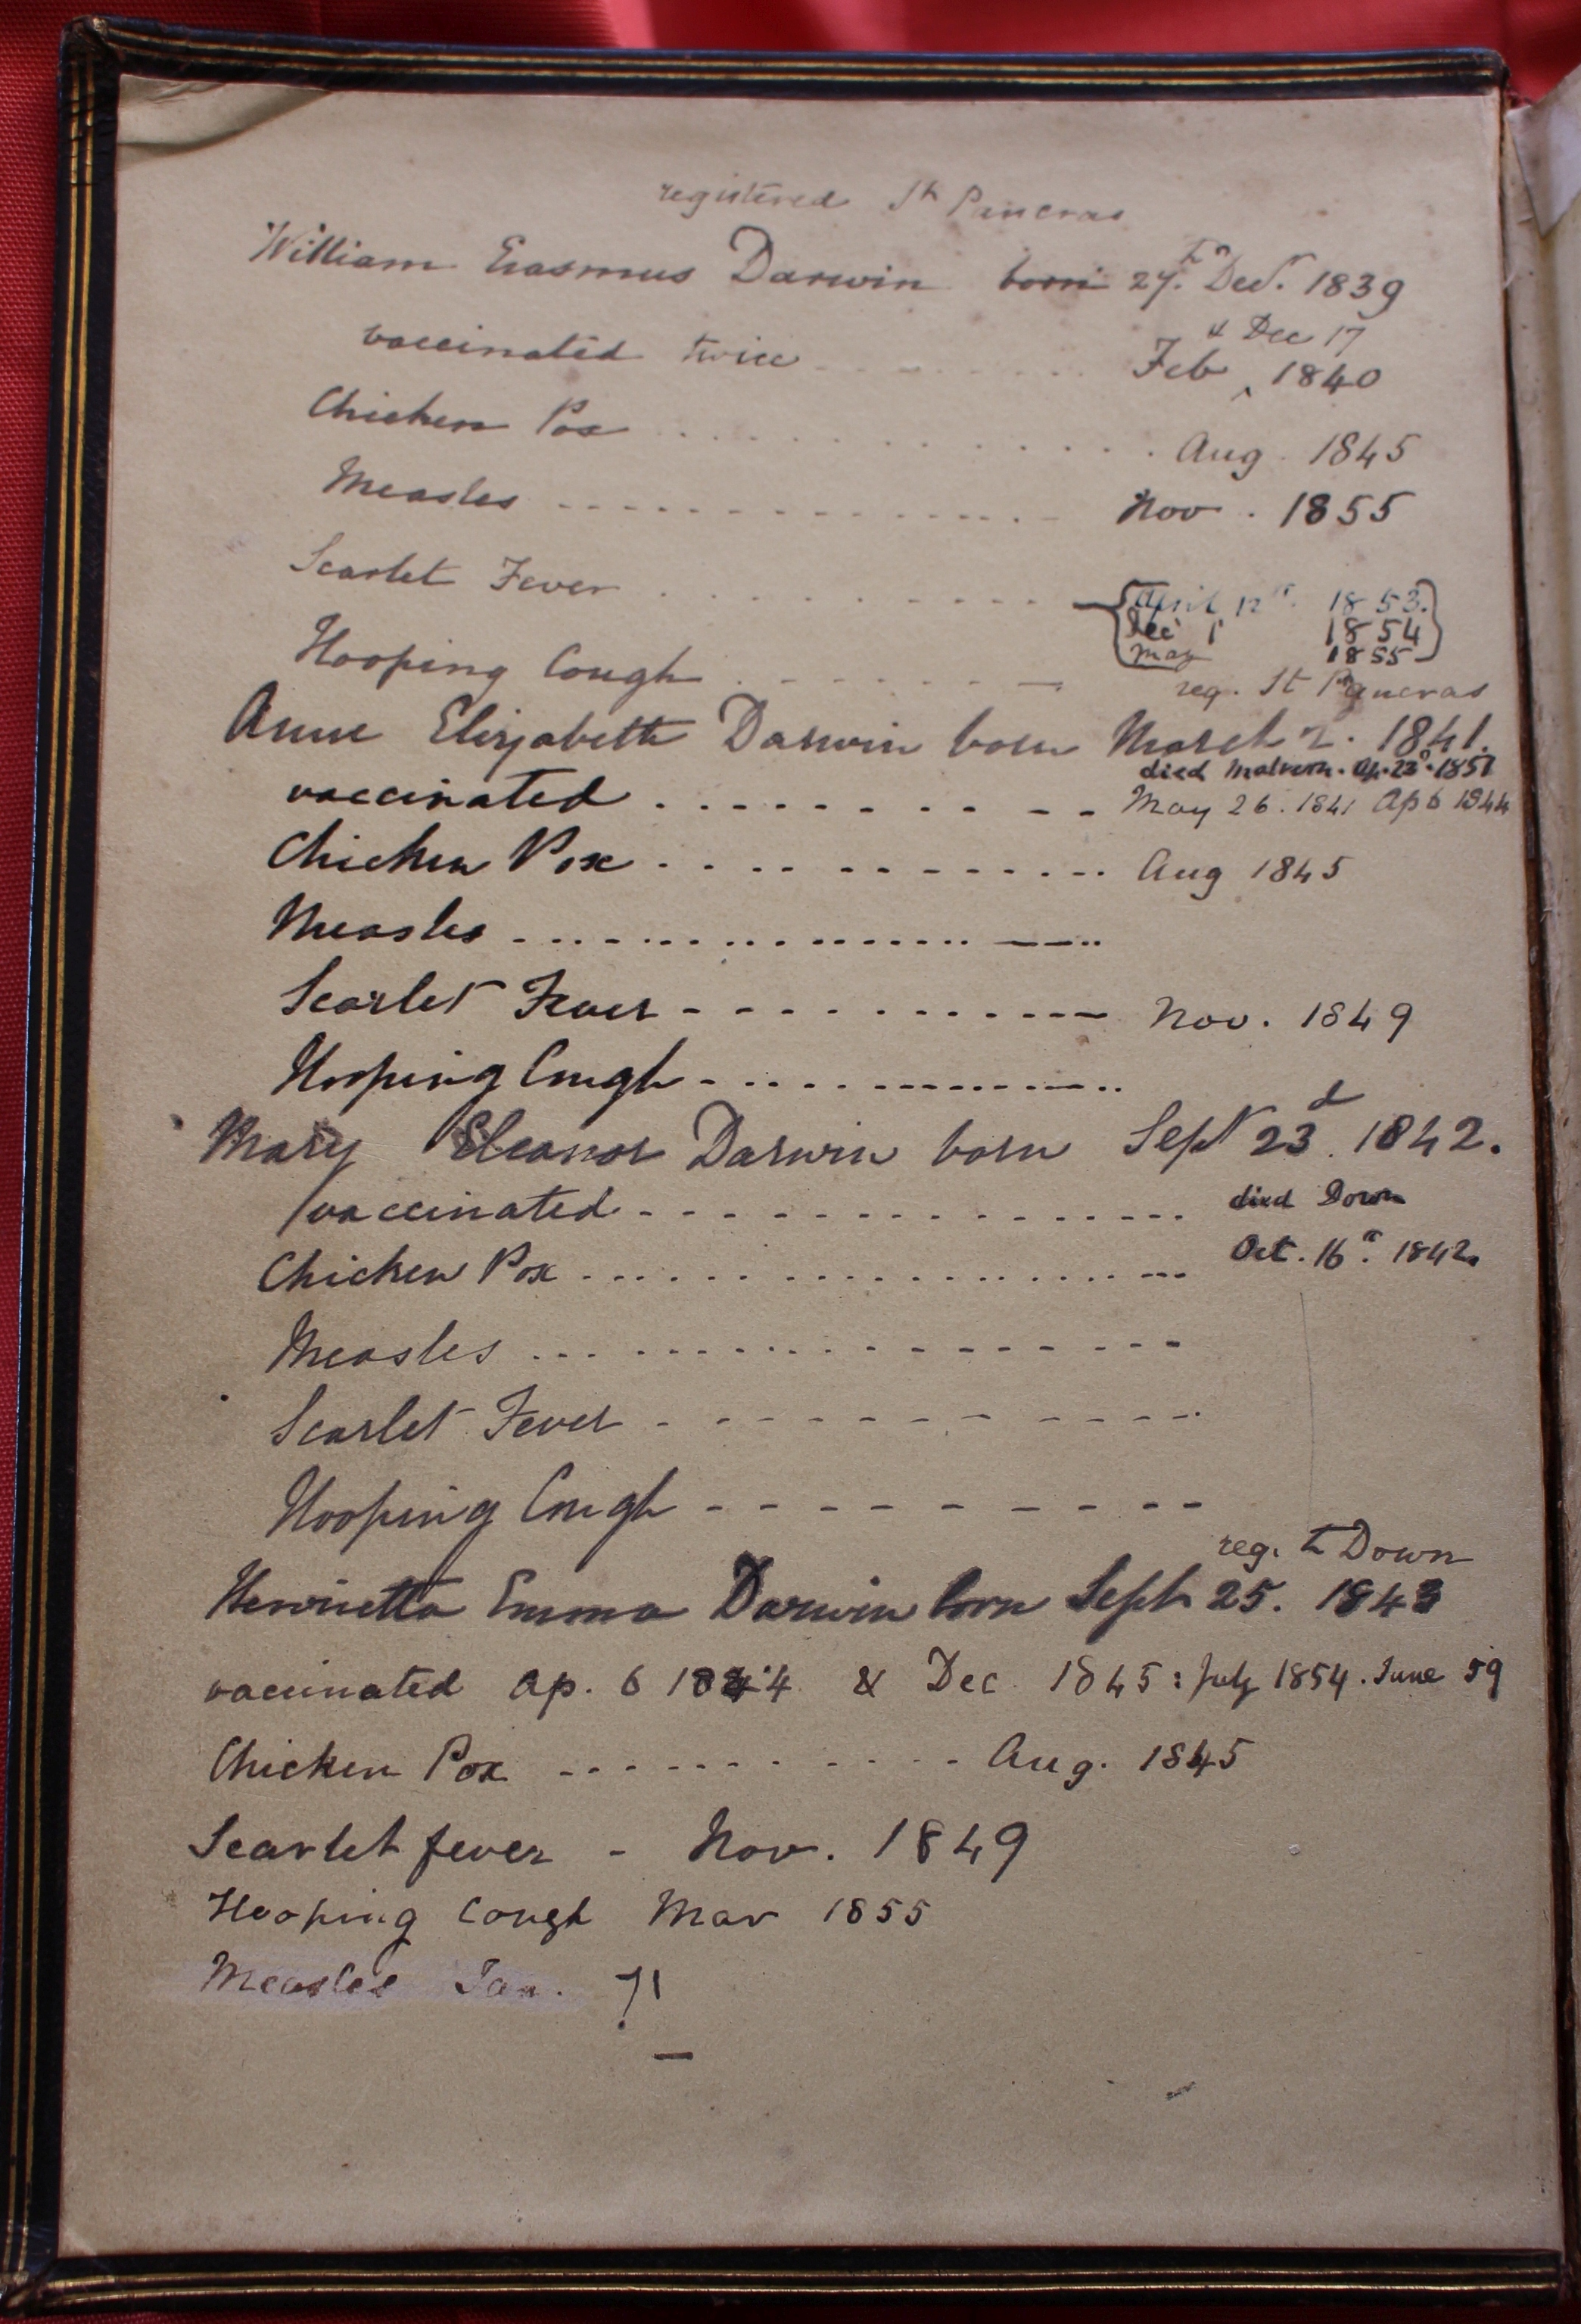 registered St Pancras
William Erasmus Darwin born 27th Decr. 1839
vaccinated twice . . . . . . . . . Feb & Dec 17 ^ 1840
Chicken Pox . . . . . . . . . . . . . Aug. 1845
Measles - - - - - - - - - - - - - Nov. 1855
Scarlet Fever . . . . . . . . . .
April 12th. 1853.
Dec 1 1854
May 1855
Hooping Cough . - - - - - - -
reg. St Pancras
Anne Elizabeth Darwin born March 2. 1841.
died Malvern. Ap. 23d. 1851
vaccinated . . . . . . . . . . May 26. 1841 Ap 6 1844
Chicken Pox . . . . . . . . . . . . Aug 1845
Measles . . . . . . . . . . . . . . . . . .
Scarlet Fever - - - - - - - - - - Nov. 1849
Hooping Cough - . . . . - - - - - - . .
Mary Eleanor Darwin born Sept 23d. 1842.
vaccinated - - - - - - - - - - - - - - - died Down
Chicken Pox . . . . . . . . . . . . . . . . . Oct. 16th. 1842.
Measles . . . . . . . . . . - - - - - -
Scarlet Fever - - - - - - - - - - -
Hooping Cough - - - - - - - - - -
reg. Down
Henrietta Emma Darwin born Sept 25. 1843
vaccinated Ap. 6 1844 & Dec 1845: July 1854. June 59
Chicken Pox - - - - - - - - - - - Aug. 1845
Scarlet fever - Nov. 1849
Hooping Cough Mar 1855
Measles Jan. 71